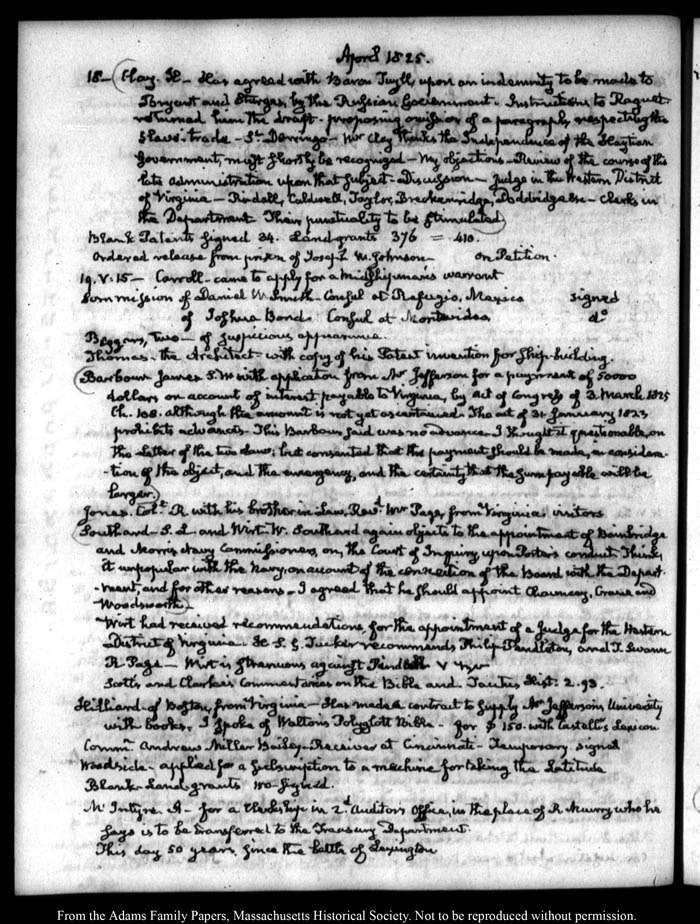 April 1825.
18— (Clay. H— Has agreed with Baron Tuyll, upon an indemnity to be made to
Bryant and Sturges, by the Russian Government. Instructions to Raguet.
returned him the draft—proposing omission of a paragraph, respecting the
Slave-trade—St. Domingo—Mr Clay thinks the Independence of the Haytian
Government, must shortly be recognized—My objections—Review of the course of the
late administration upon that subject—Discussion—Judge in the Western District
of Virginia—Pindall, Caldwell, Taylor, Breckenridge, Doddridge &c—Clerks in
the Department Their punctuality to be stimulated)
Blank Patents signed 34. Land grants 376 = 410.
Ordered release from prison of Joseph W. Johnson— on Petition.
19. V. 15— Carroll—came to apply for a midshipman's warrant
Commission of Daniel W. Smith—Consul at Refugio, Mexico signed
of Joshua Bond: Consul at Montevideo do
Beggars, two—of suspicious appearance.
Thomas. the Architect—with copy of his Patent invention for Ship-building.
(Barbour James S. W with application from Mr Jefferson for a payment of 50000
dollars on account of interest payable to Virginia, by act of Congress of 3. March 1825
Ch. 108. although the amount is not yet ascertained. The act of 31. January 1823
prohibits advances. This Barbour said was no advance. I thought it questionable, on
the letter of the two laws; but consented that the payment should be made, in considera-
-tion of the object, and the emergency, and the certainty that the sum payable will be
larger.)
Jones. Coll. R with his brother in Law, Revd. Mr Page, from Virginia. visitors
(Southard—S. L and Wirt—W. Southard again objects to the appointment of Bainbridge
and Morris Navy Commissioners, on, the Court of Inquiry, upon Porter's conduct. Thinks
it unpopular with the Navy, on account of the connection of the Board with the Depart-
-ment, and for other reasons—I agreed that he should appoint Chauncey, Crane and
Woodsworth)
Wirt had received recommendations, for the appointment of a Judge for the Western
District of Virginia. H. S. G. Tucker recommends Philip Pendleton, and T. Swann
R. Page— Wirt is strenuous against Pindall
Scott's and Clarke's Commentaries on the Bible and Tacitus Hist: 2. 93
Hilliard—of Boston, from Virginia—Has made a contract to supply Mr Jefferson's University
with books. I spoke of Walton's Polyglott Bible—for $150. with Castell's Lexicon
Commn Andrew Miller Bailey—Receiver at Cincinnati—Temporary signed
Woodside—applied for a subscription to a machine for taking the Latitude
Blank—Land grants 150 signed.
McIntyre. A—for a Clerkship in 2d Auditor's Office, in the place of R. Maury who he
says is to be transferred to the Treasury Department.
This day 50 years since the battle of Lexington
From the Adams Family Papers, Massachusetts Historical Society. Not to be reproduced without permission.